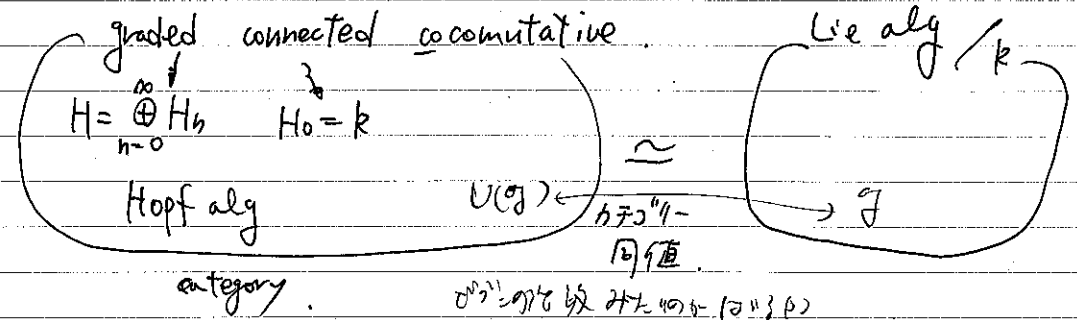 graded connected cocomutative.
Lie alg / k
H = ⊕ Hn H0 = k
∞
n=0
≃
Hopf alg U(g) ↔ g
カテゴリー
同値.
category.